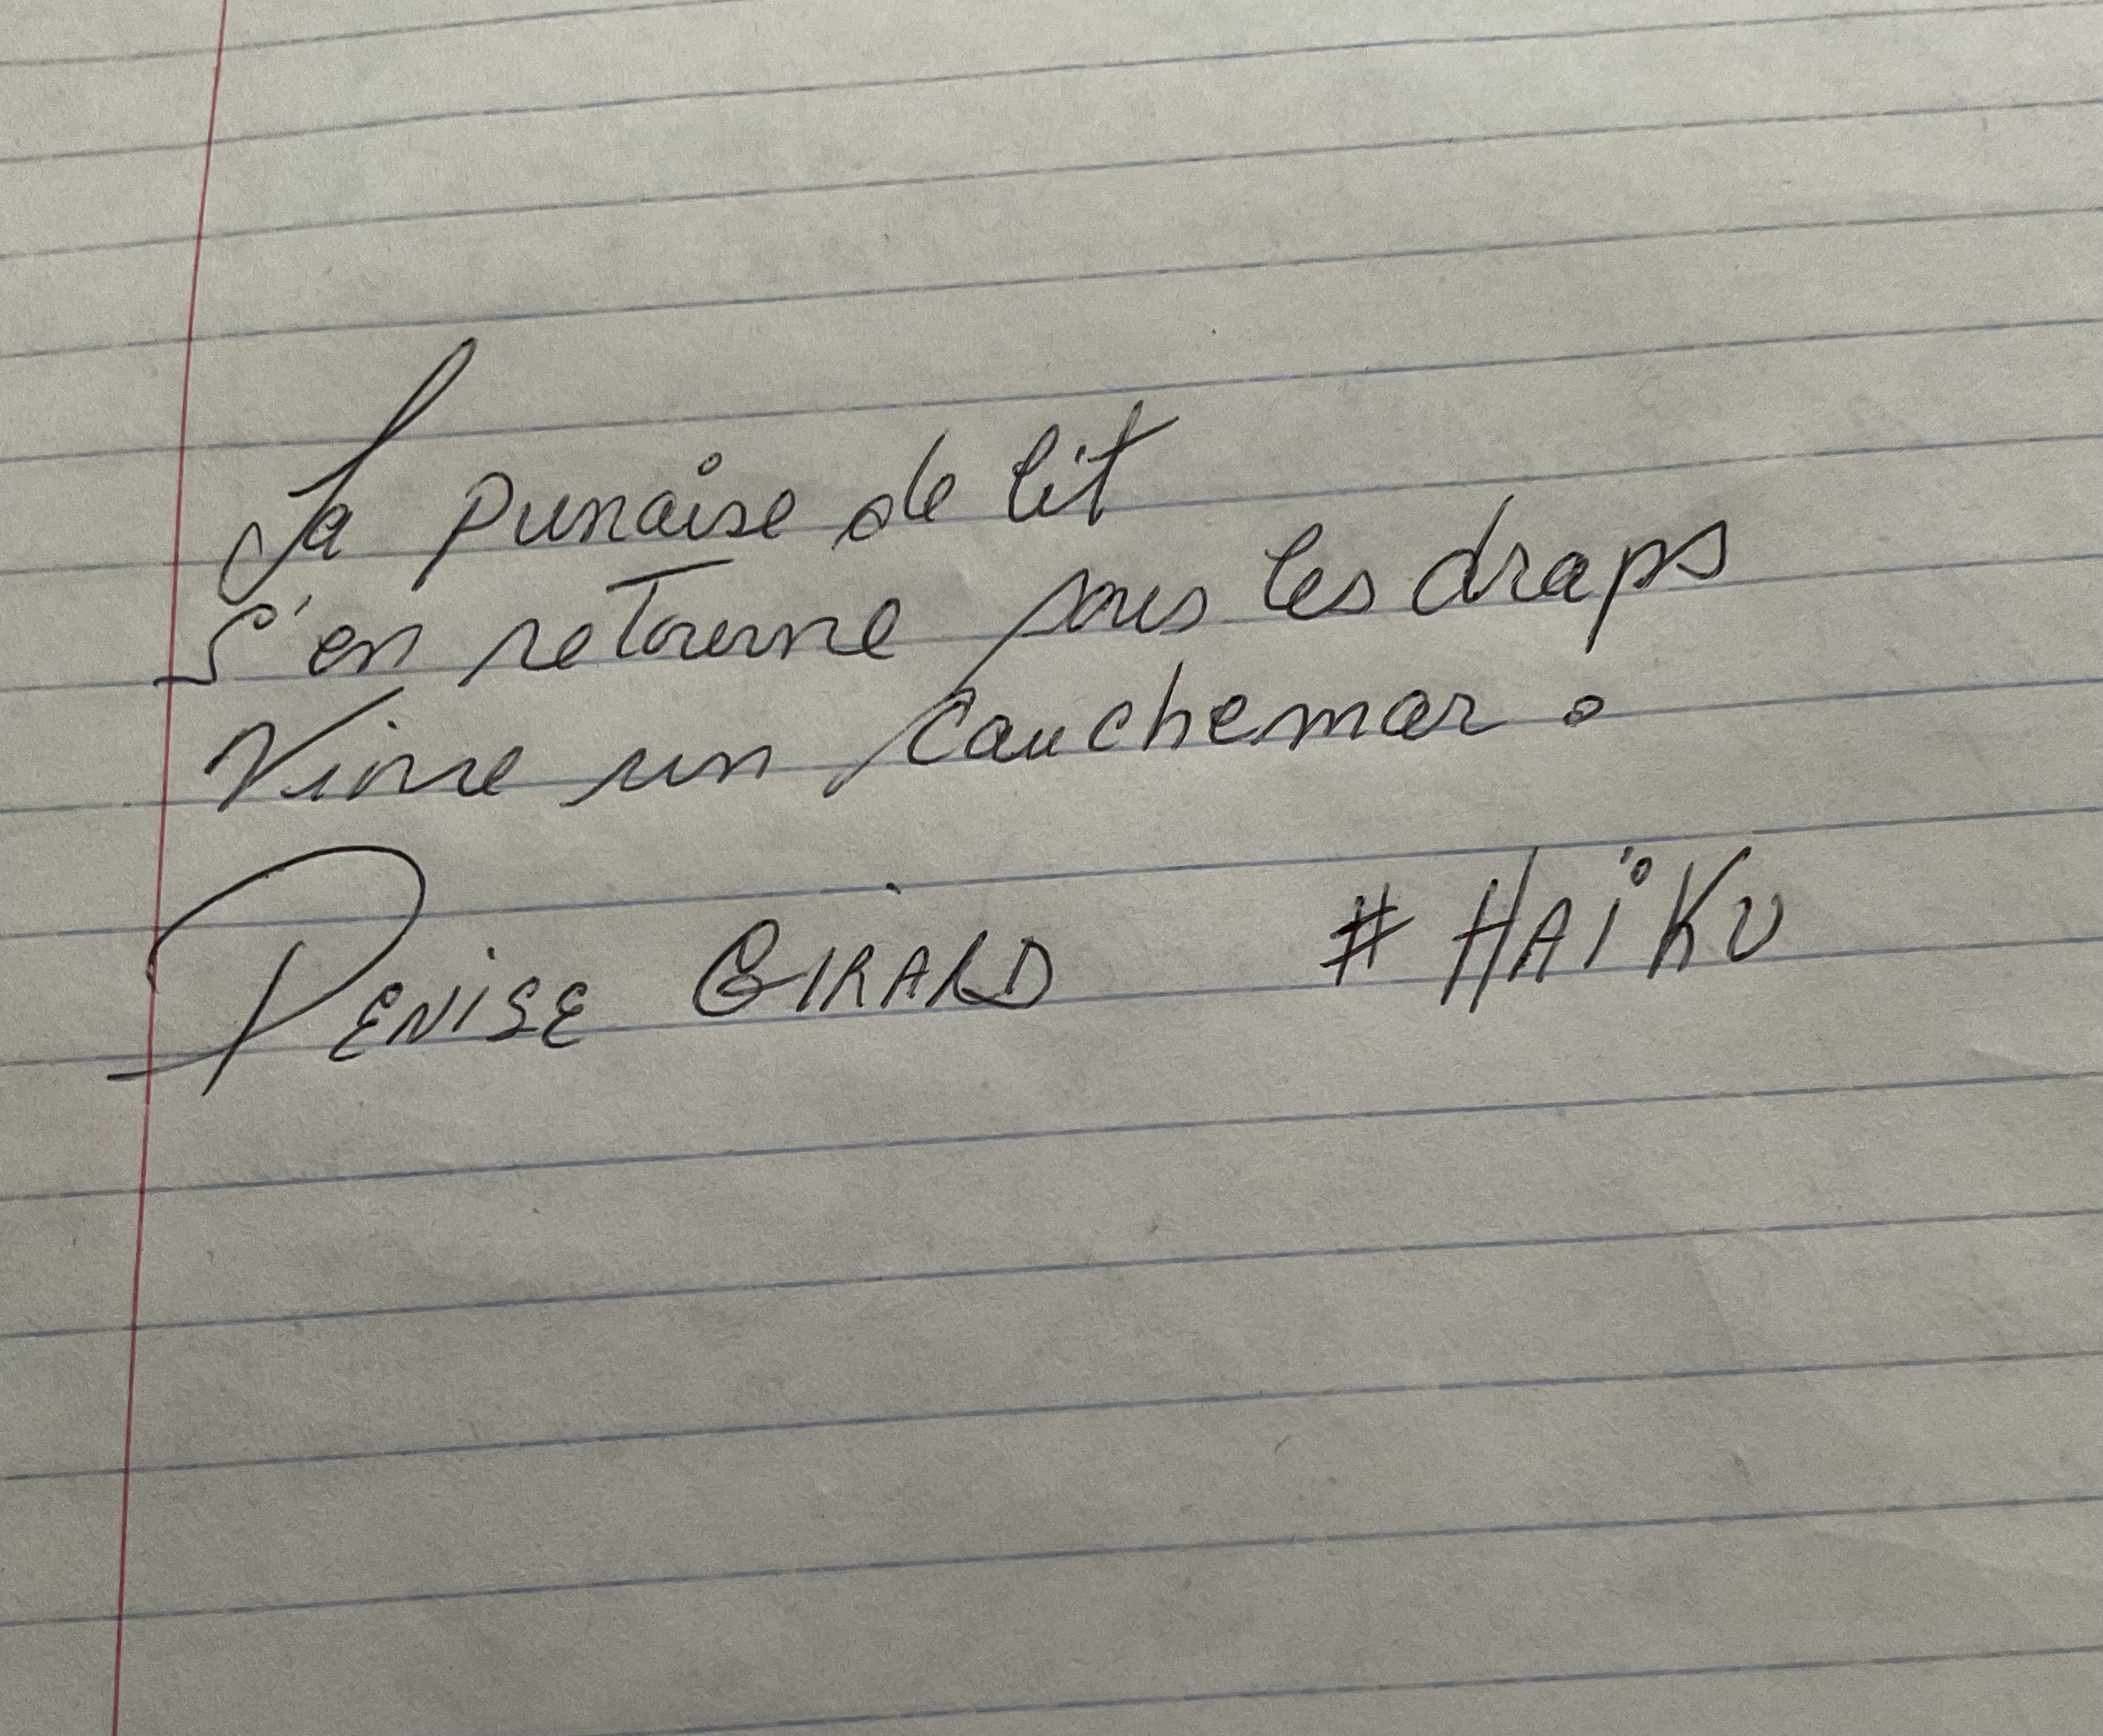 La punaise de lit
S'en retourne sous les draps
Vivre un cauchemar.
DENISE GIRARD #HAÏKU